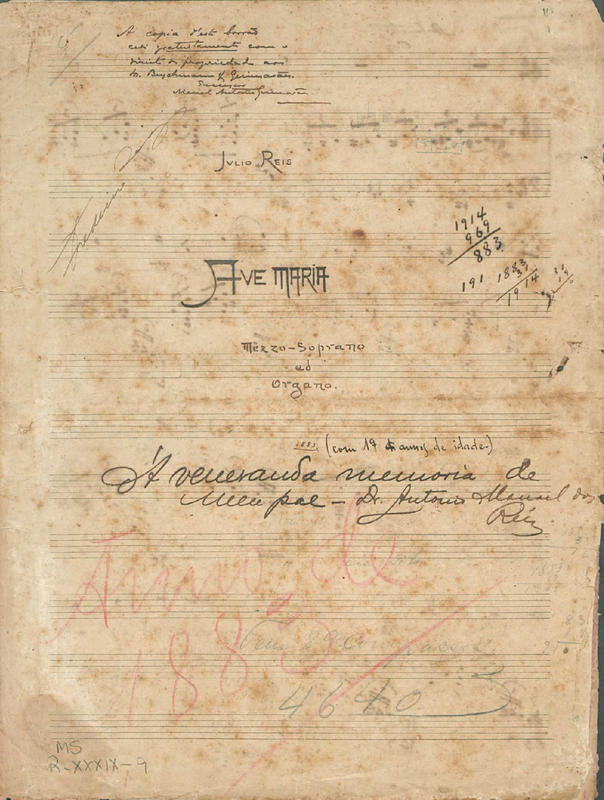 A copia d'este borrão
cedi gratuitamente com o
direito de propriedade aos
Buschmann & Guimarães.
Manoel Antonio Guimarães
JULIO REIS
1914
969
883
191
1883
31
1914
AVE MARIA
MEZZO-SOPRANO
ed
ORGANO.
1883 (com 19 annos de idade)
Á veneranda memoria de
Meu pae - Dr. Antonio Manuel dos
Reis
Anno de
1883
4640
MS
R-XXXIX-9